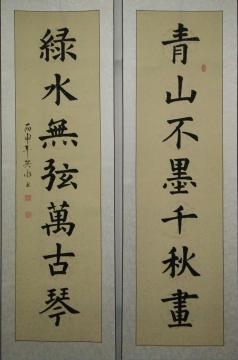 青山不墨千秋畫
綠水無弦萬古琴
丙申年